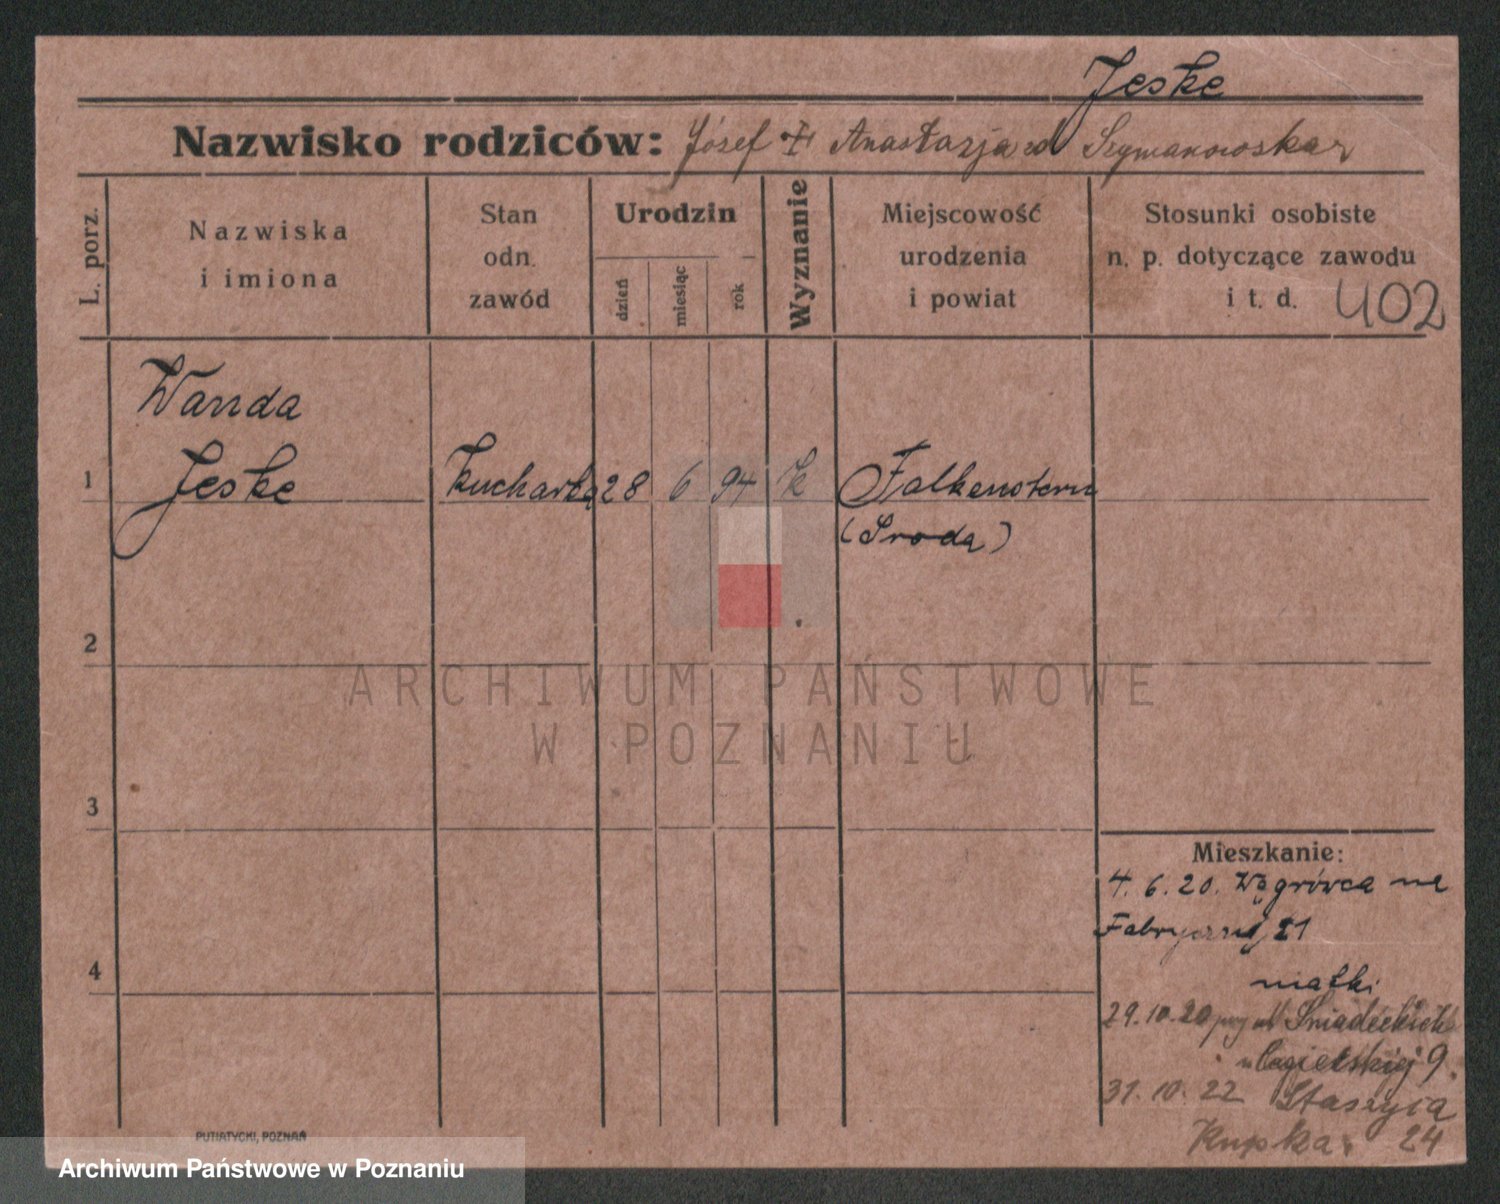 Jeske
Nazwisko rodziców: Józef i Anastazja zd Szymanowska
L. porz.
Nazwiska
i imiona
Stan
odn.
zawód
Urodzin
dzień
miesiąc
rok
Wyznanie
Miejscowość
urodzenia
i powiat
Stosunki osobiste
n. p. dotyczące zawodu
i t. d. 402
Wanda
1 Jeske Kucharka 28 6 94 k Falkenstern
(Sroda)
2
ARCHIWUM PAŃSTWOWE
W POZNANIU
3
Mieszkanie:
4. 6. 20. Wągrówca na
Fabrycznej 21
4
matki
29. 10. 20 Śniadeckich
9.
31. 10. 22 Staszyca
24
PUTIATYCKI, POZNAŃ
Archiwum Państwowe w Poznaniu